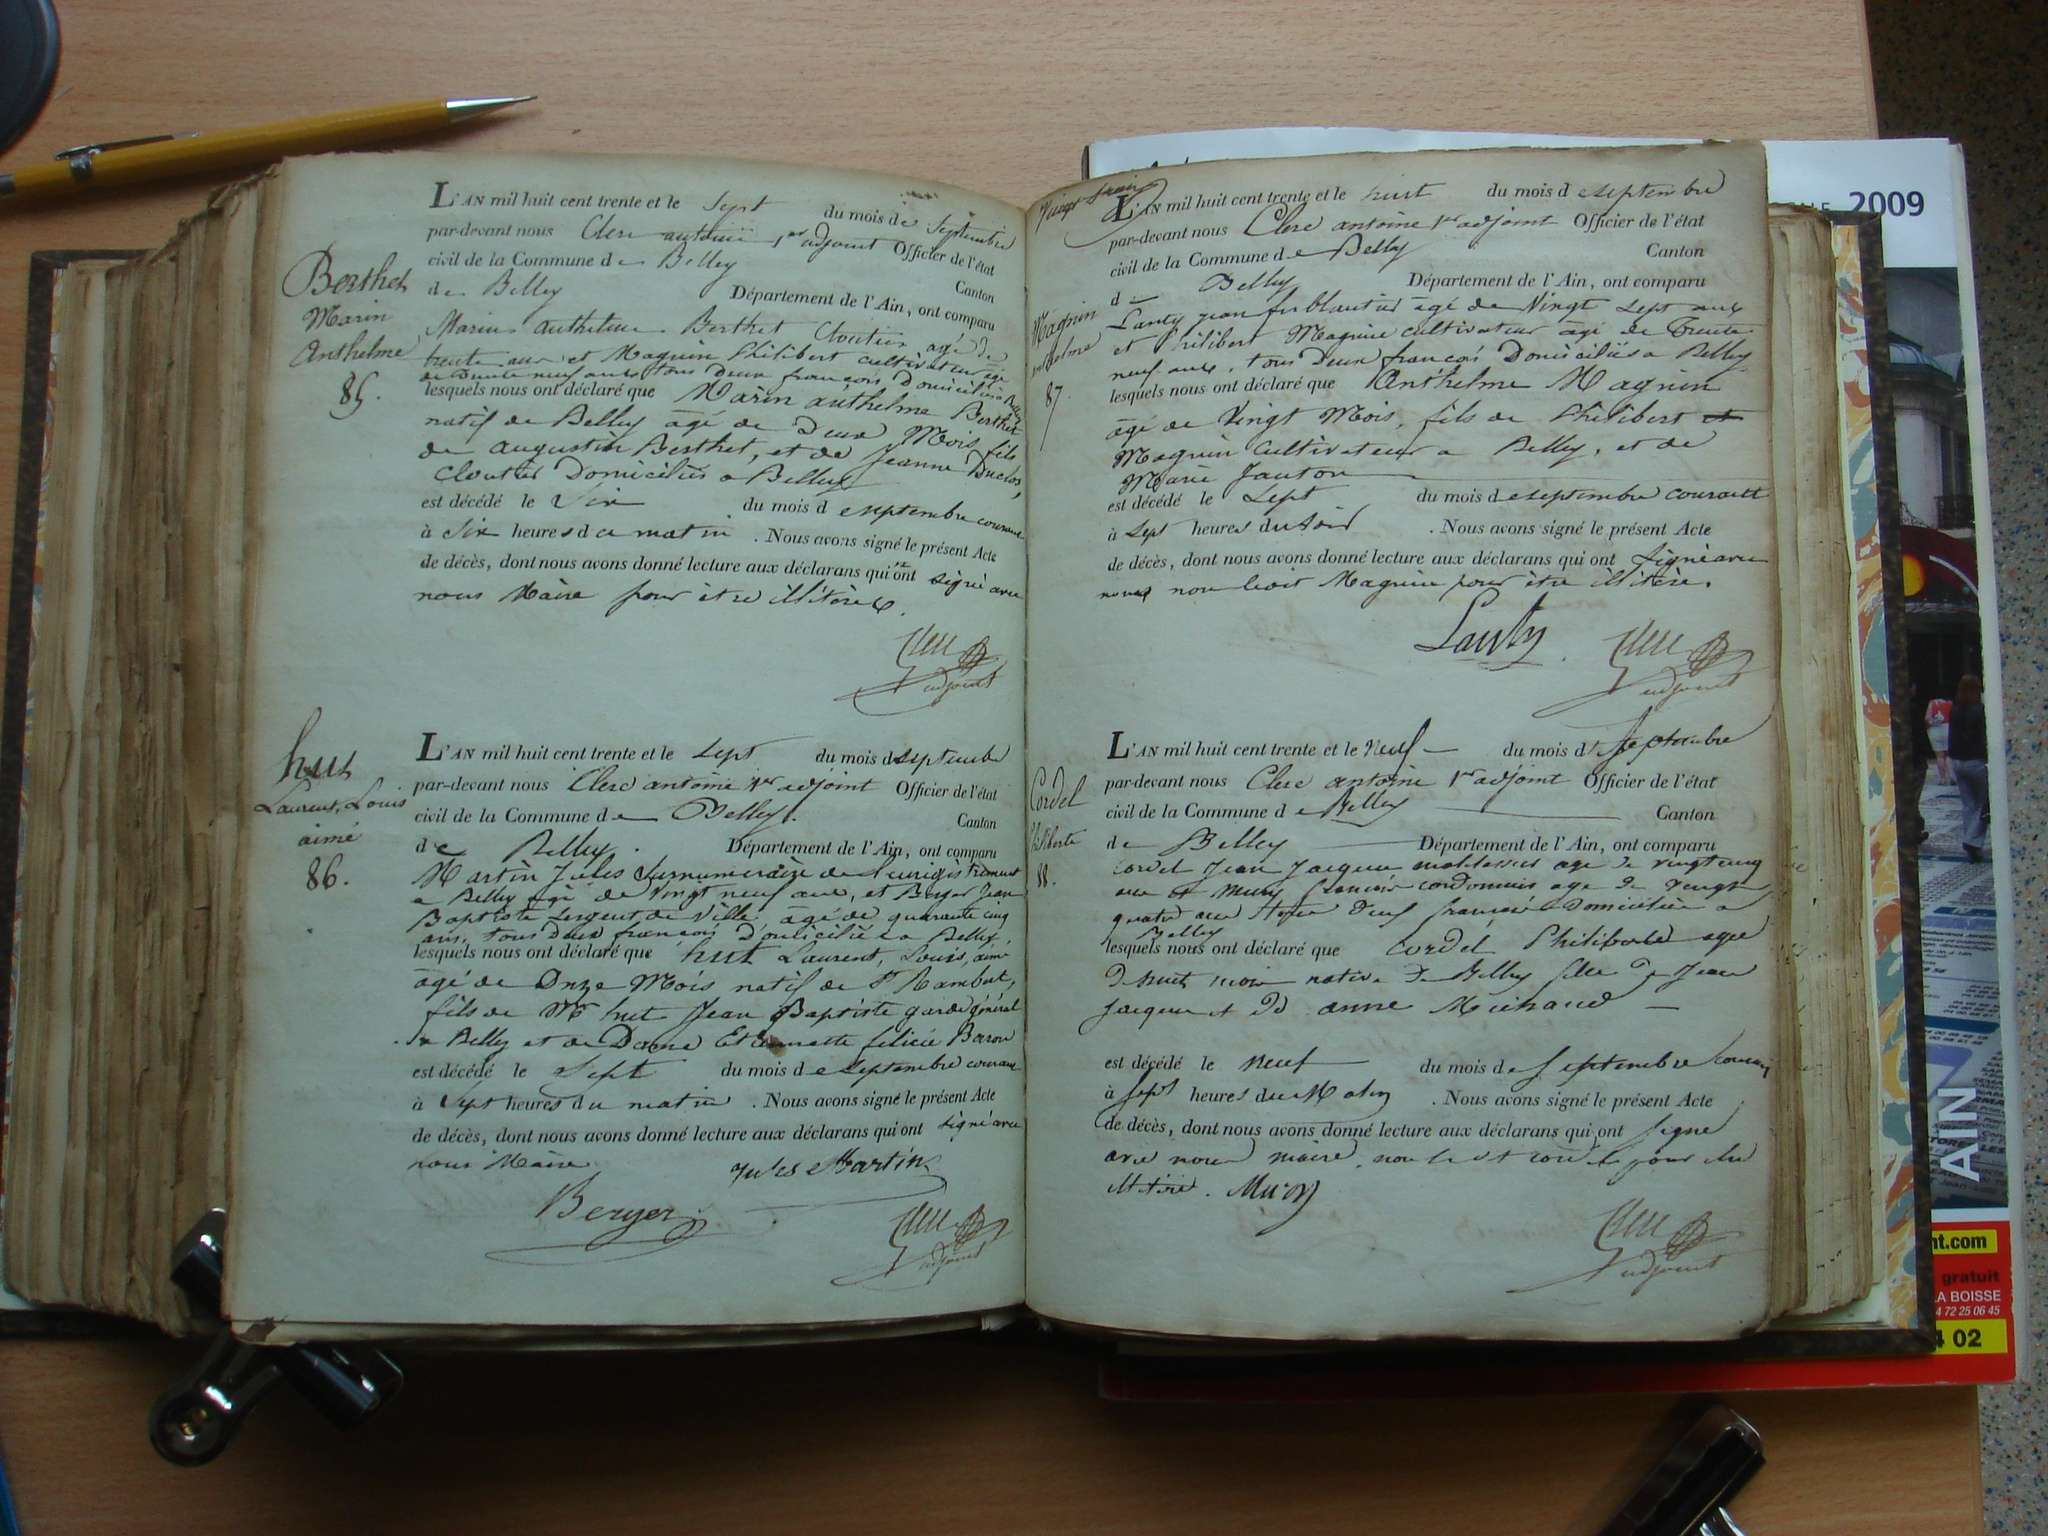 L'AN mil huit cent trente et le Sept du mois de Septembre
par-devant nous Clerc antoine 1er adjoint Officier de l'état
civil de la Commune de Belley Canton
de Belley Département de l'Ain, ont comparu
Marin anthelme Berthet Cloutier agé de
trente ans et Magnin Philibert cultivateur age
de trente neuf ans tous deux francois Domiciliés a Belley
lesquels nous ont déclaré que Marin anthelme Berthet
natif de Belley âgé de Deux Mois, fils
de augustin Berthet, et de Jeanne Duclos,
Cloutier Domiciliés a Belley
est décédé le Six du mois de septembre courant
à Six heures du matin . Nous avons signé le présent Acte
de décès, dont nous avons donné lecture aux déclarans qui n'ont signé avec
nous Maire pour etre illitéres.
Clerc
adjoint
Berthet
Marin
Anthelme
85.
L'AN mil huit cent trente et le sept du mois de septembre
par-devant nous Clerc antoine 1er adjoint Officier de l'état
civil de la Commune de Belley. Canton
de Belley. Département de l'Ain, ont comparu
Martin Jules Surnumeraire de l'enrigistrement
a Belley âgé de vingt neuf ans, et Berger Jean
Baptiste Sergent de Ville âgé de quarante cinq
ans, tous deux francois Domiciliés a Belley,
lesquels nous ont déclaré que hut Laurent, Louis, aimé
âgé de Onze Mois natif de St Rambert,
fils de Mr hut Jean Baptiste garde général
a Belley et de Dame Etiennette félicie Baron
est décédé le Sept du mois de septembre courant
à Sept heures du matin . Nous avons signé le présent Acte
de décès, dont nous avons donné lecture aux déclarans qui ont signé avec
nous Maire
Jules Martin
Berger
Clerc
adjoint
hut
Laurent, Louis
aimé
86.
L'AN mil huit cent trente et le huit du mois de septembre
par-devant nous Clerc antoine 1er adjoint Officier de l'état
civil de la Commune de Belley Canton
d Belley Département de l'Ain, ont comparu
Lanty jean ferblantier âgé de Vingt Sept ans
et Philibert Magnin cultivateur âgé de Trente
neuf ans, tous Deux francois Domiciliés a Belley
lesquels nous ont déclaré que Anthelme Magnin
âgé de Vingt Mois, fils de Philibert et
Magnin Cultivateur a Belly, et de
Marie Janton
est décédé le Sept du mois de septembre courant
à Sept heures du Soir . Nous avons signé le présent Acte
de décès, dont nous avons donné lecture aux déclarans qui ont signé avec
nous non ledit Magnin pour être illitére.
Lanty
Clerc
adjoint
Magnin
anthelme
87.
L'AN mil huit cent trente et le neuf du mois de Septembre
par-devant nous Clerc antoine 1er adjoint Officier de l'état
civil de la Commune de Belley Canton
de Belley Département de l'Ain, ont comparu
cordel Jean Jacques age de vingt cinq
ans et francois cordonnier age de vingt
quatre ans tous deux francois Domiciliés a
Belley
lesquels nous ont déclaré que cordel Philiberte agee
de huit mois native de Belley fille de Jean
Jacques et de anne Michaud
est décédé le neuf du mois de Septembre courant
à Sept heures du Matin . Nous avons signé le présent Acte
de décès, dont nous avons donné lecture aux déclarans qui ont signe
avec nous maire, non ledit cordel pour etre
illitére.
Clerc
adjoint
Cordel
Philiberte
88.
2009
AIN
nt.com
gratuit
LA BOISSE
4 72 25 06 45
4 02